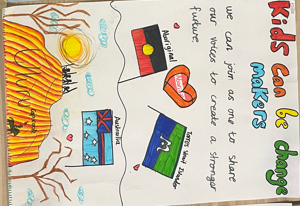 Kids can be change
makers
we can join as one to share
our voices to create a stronger
future.
Aboriginal
Torres Strait Islander
Australia